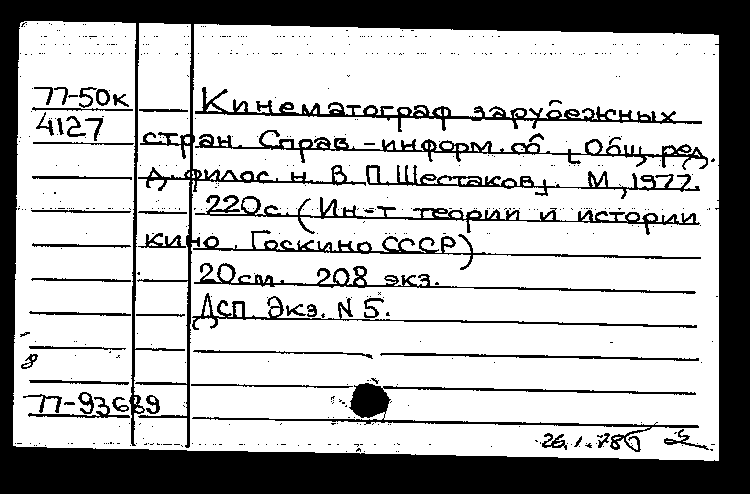 77-50к
4127
Кинематограф зарубежных
стран. Справ.-информ. сб. [Общ. ред.
д. филос. н. В.П. Шестаков]. М., 1977.
220с. (Ин-т теории и истории
кино. Госкино СССР)
20см. 208 экз.
ДСП Экз. N 5.
8
77-93689
26.1.78